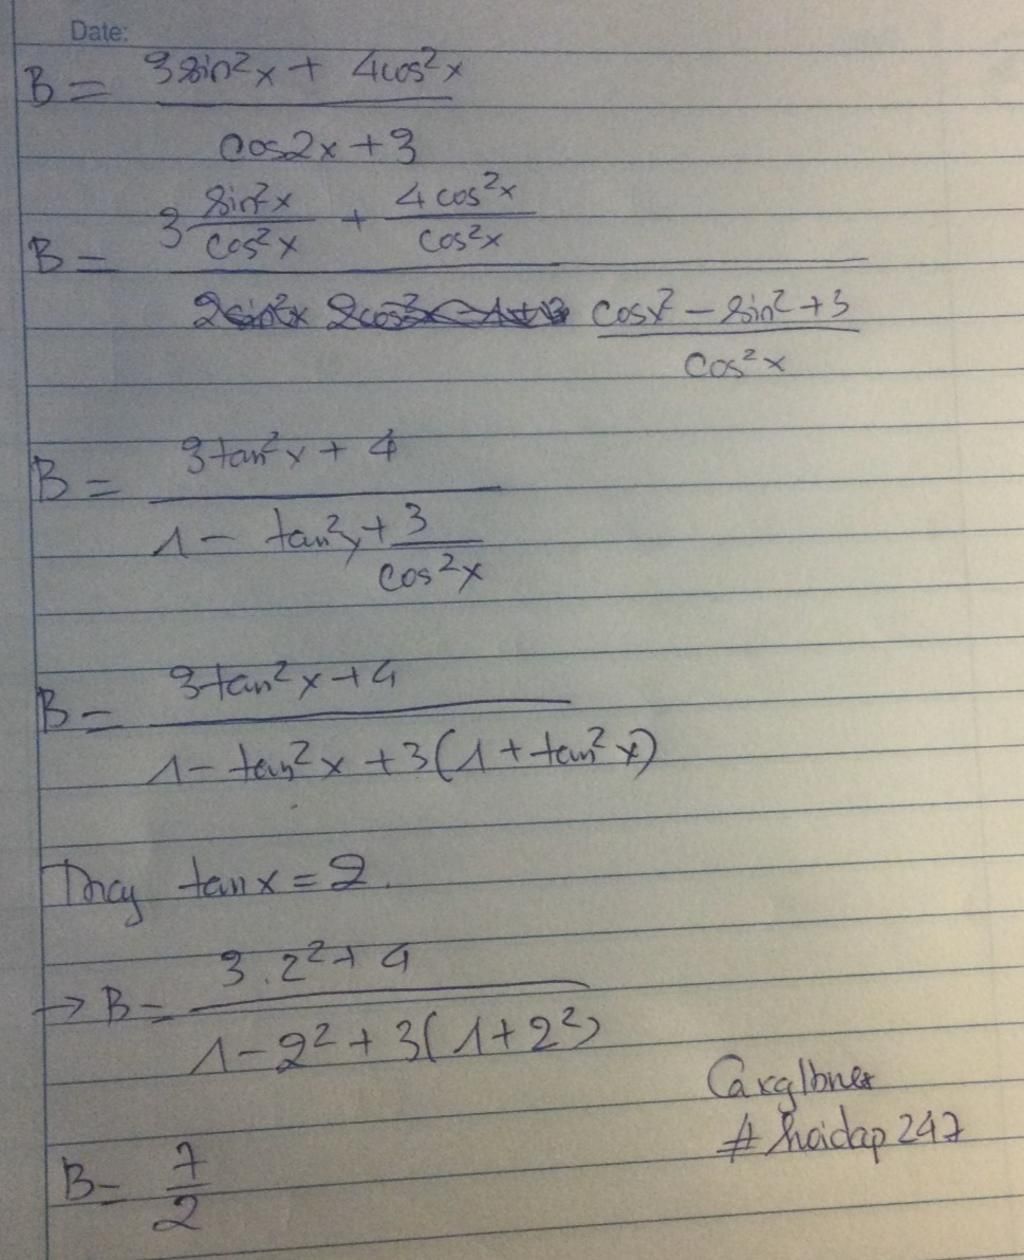 Date:
B = (3sin²x + 4cos²x) / (cos2x + 3)
B = (3 sin²x/cos²x + 4cos²x/cos²x) / ((cosx² - sin² + 3)/cos²x)
B = (3tan²x + 4) / (1 - tan²x + 3/cos²x)
B = (3tan²x + 4) / (1 - tan²x + 3(1 + tan²x))
Thay tanx = 2.
→ B = (3.2² + 4) / (1 - 2² + 3(1 + 2²)
#hoidap247
B = 7/2